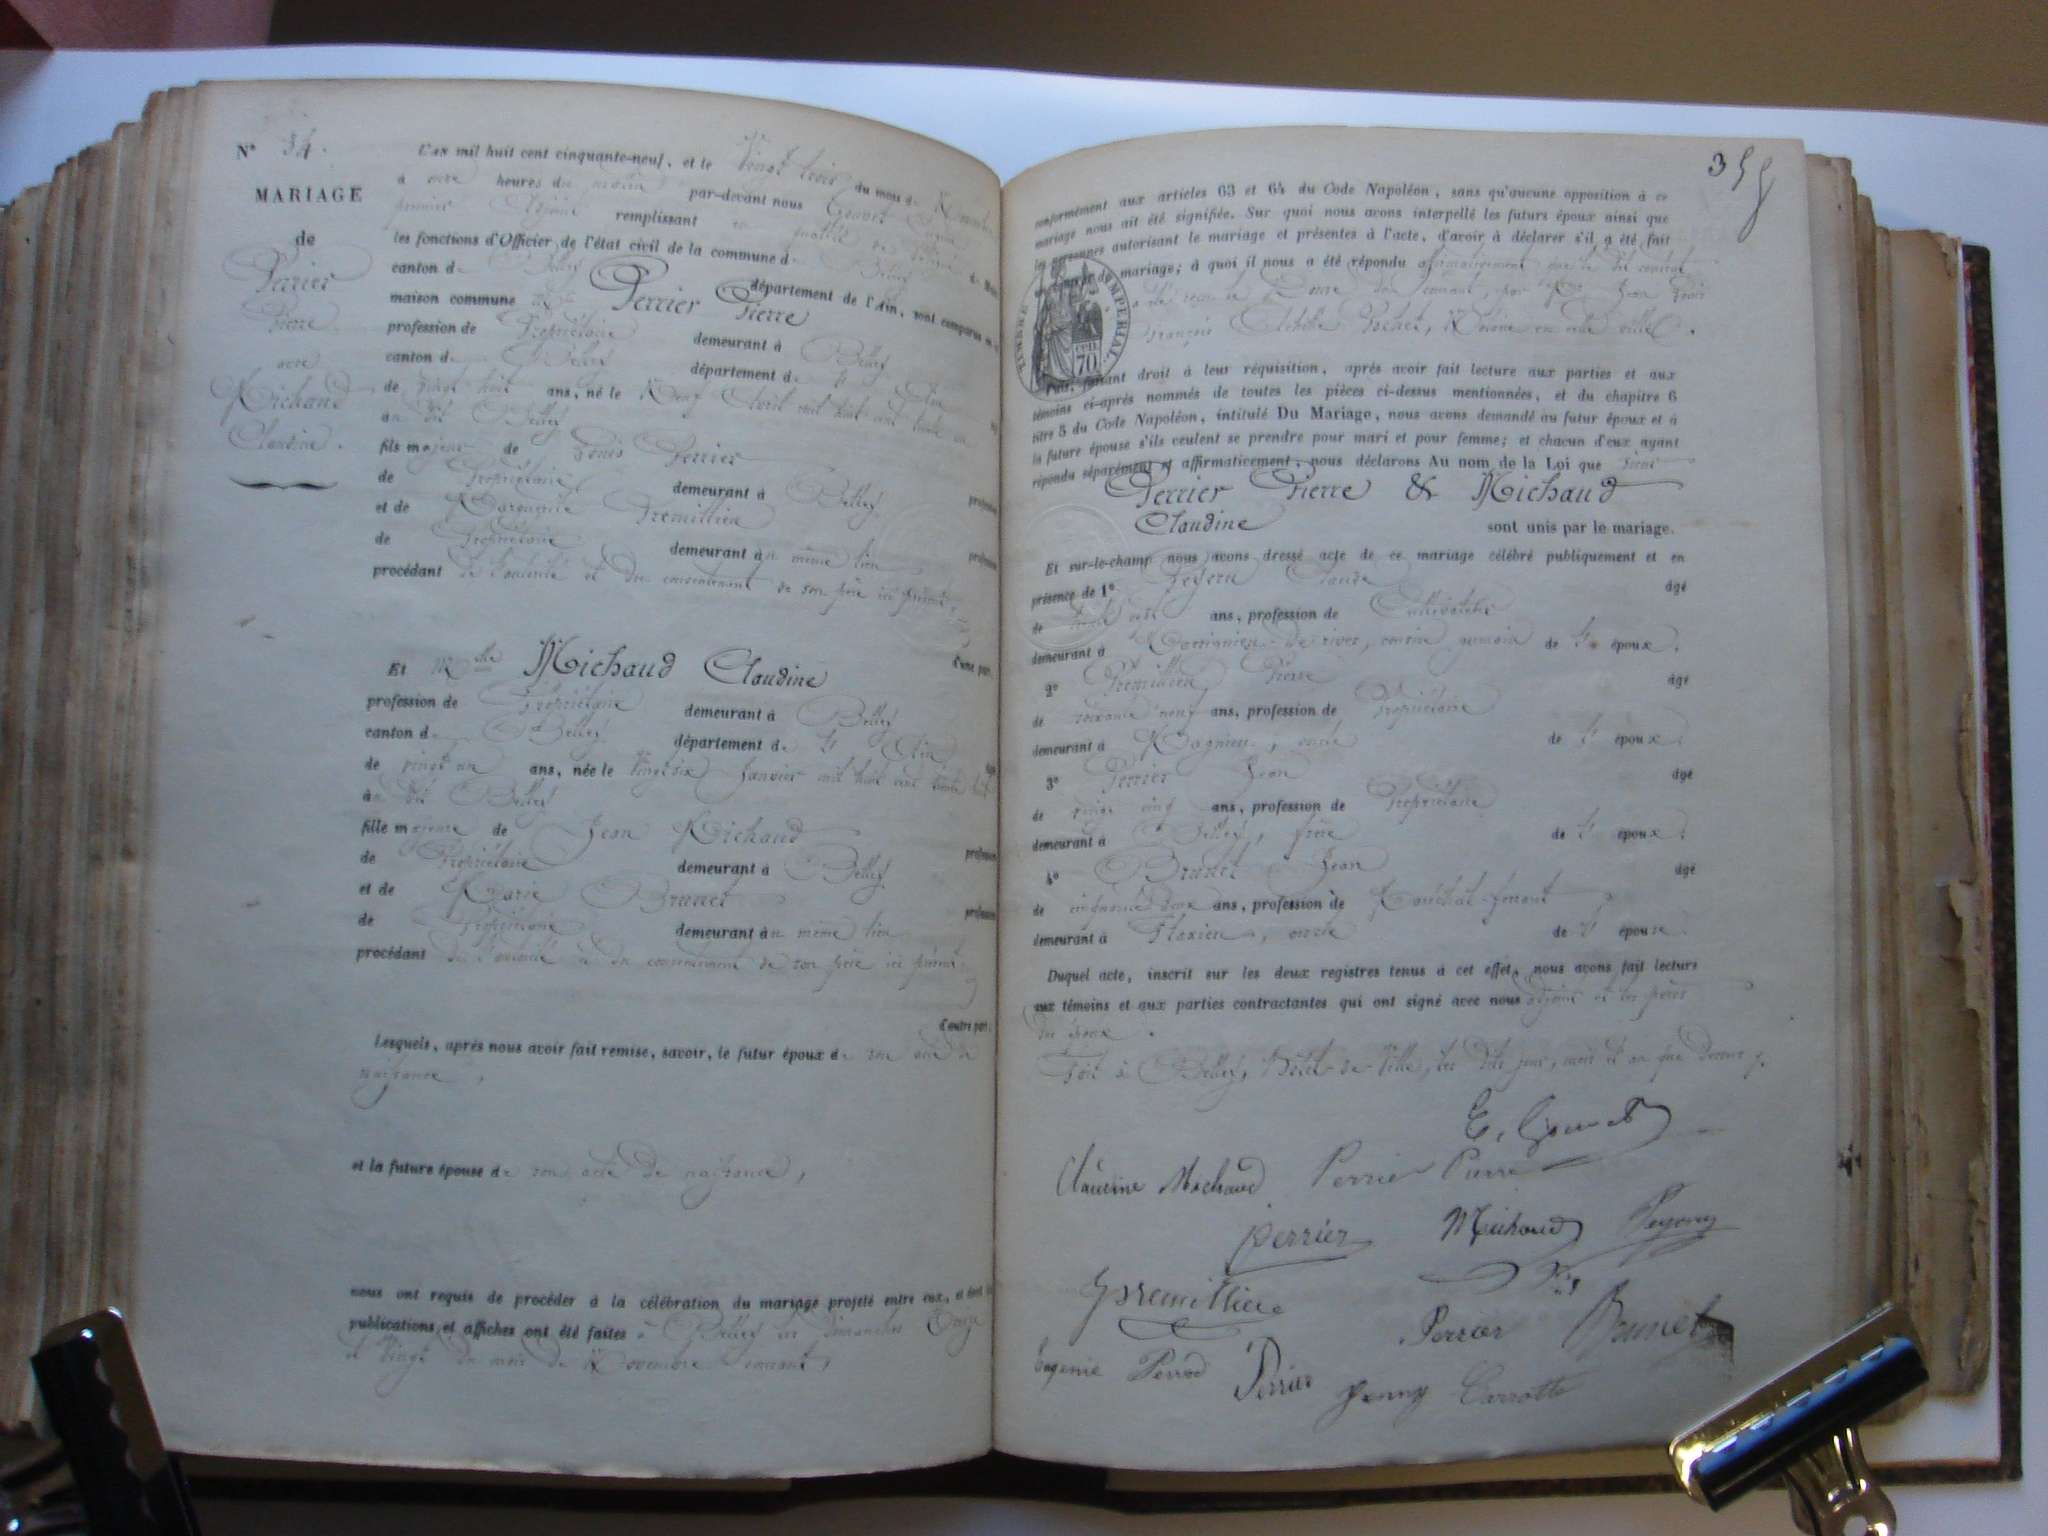 N° 34.
MARIAGE
de
Perrier
Pierre
avec
Michaud
Claudine.
L'AN mil huit cent cinquante-neuf, et le Vingt trois du mois de Novembre
à onze heures du matin par-devant nous Gonnet
premier Adjoint remplissant en qualité de
les fonctions d'Officier de l'état civil de la commune de Belley
canton de Belley département de l'Ain, sont comparus en la
maison commune Mr Perrier Pierre
profession de Propriétaire demeurant à Belley
canton de Belley département de l'Ain
de vingt huit ans, né le Neuf Avril mil huit cent trente un
au dit Belley
fils majeur de Louis Perrier
de Propriétaire demeurant à Belley profession
et de Marguerite Tremillieu
de Propriétaire demeurant au même lieu profession
procédant de l'autorité et du consentement de son père ici présent,
d'une part.
Et Mlle Michaud Claudine
profession de Propriétaire demeurant à Belley
canton de Belley département de l'Ain, âgée
de vingt un ans, née le Vingt six Janvier mil huit cent trente huit
au dit Belley
fille majeure de Jean Michaud
de Propriétaire demeurant à Belley profession
et de Marie Brunet
de Propriétaire demeurant au même lieu profession
procédant de l'autorité et du consentement de son père ici présent,
d'autre part.
Lesquels, après nous avoir fait remise, savoir, le futur époux de son acte de
naissance,
et la future épouse de son acte de naissance,
nous ont requis de procéder à la célébration du mariage projeté entre eux, et dont les
publications et affiches ont été faites à Belley les Dimanches Treize
et Vingt du mois de Novembre courant,
355
conformément aux articles 63 et 64 du Code Napoléon, sans qu'aucune opposition à ce
mariage nous ait été signifiée. Sur quoi nous avons interpellé les futurs époux ainsi que
les personnes autorisant le mariage et présentes à l'acte, d'avoir à déclarer s'il a été fait
un contrat de mariage; à quoi il nous a été répondu affirmativement que le dit contrat
a été reçu le Douze du courant, par Me Jean Louis
François Achille Notaire en cette ville.
TIMBRE IMPERIAL
cen. 70
Puis, faisant droit à leur réquisition, après avoir fait lecture aux parties et aux
témoins ci-après nommés de toutes les pièces ci-dessus mentionnées, et du chapitre 6
titre 5 du Code Napoléon, intitulé Du Mariage, nous avons demandé au futur époux et à
la future épouse s'ils veulent se prendre pour mari et pour femme; et chacun d'eux ayant
répondu séparément et affirmativement, nous déclarons Au nom de la Loi que
Perrier Pierre & Michaud
Claudine sont unis par le mariage.
Et sur-le-champ nous avons dressé acte de ce mariage célébré publiquement et en
présence de 1° Claude âgé
de ans, profession de Cultivateur
demeurant à Massignieu-de-rives, cousin germain de l' époux.
2° Tremillieu Pierre âgé
de soixante neuf ans, profession de Propriétaire
demeurant à Magnieu, oncle de l' époux.
3° Perrier Jean âgé
de vingt cinq ans, profession de Propriétaire
demeurant à Belley, frère de l' époux.
4° Brunet Jean âgé
de cinquante deux ans, profession de Maréchal-ferrant
demeurant à Flaxieu, oncle de l' épouse.
Duquel acte, inscrit sur les deux registres tenus à cet effet, nous avons fait lecture
aux témoins et aux parties contractantes qui ont signé avec nous adjoint et les pères
des époux.
Fait à Belley, Hôtel-de-Ville, les dits jour, mois et an que dessus.
E. Gonnet
Claudine Michaud Perrier Pierre
Perrier Michaud
Tremillieu
Perrier Brunet
Eugenie Perrod Perrier Jenny Carrotte